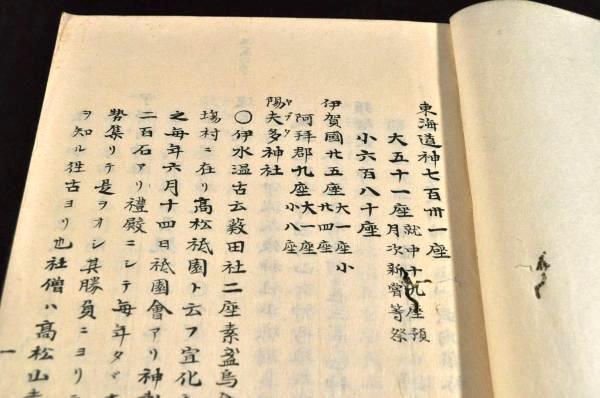 東海道神七百卅一座
大五十一座 就中十九座預
月次新嘗等祭
小六百八十座
伊賀國廿五座 大一座小
廿四座
阿拜郡九座 大一座
小八座
ヤブタ
陽夫多神社
〇伊水温古云薮田社二座素盞烏
塲村ニ在リ高松祗園ト云フ宣化
之毎年六月十四日祗園會アリ神
二百石アリ禮殿ニシテ毎年タヾ
勢集リテ是ヲオシ其勝負ニヨリ
ヲ知ル徃古ヨリ也社僧ハ高松山
一